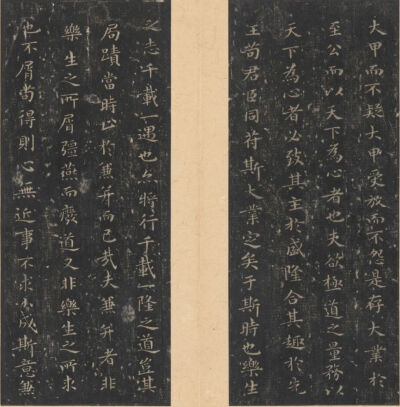 大甲而不疑大甲受放而不怨是存大業於
至公而以天下為心者也夫欲極道之量務以
天下為心者必致其主於盛隆合其趣於先
王苟君臣同符斯大業定矣于斯時也樂生
之志千載一遇也亦將行千載一隆之道豈其
局蹟當時止於兼并而已哉夫兼并者非
樂生之所屑彊燕而癈道又非樂生之所求
也不屑苟得則心無近事不求小成斯意兼